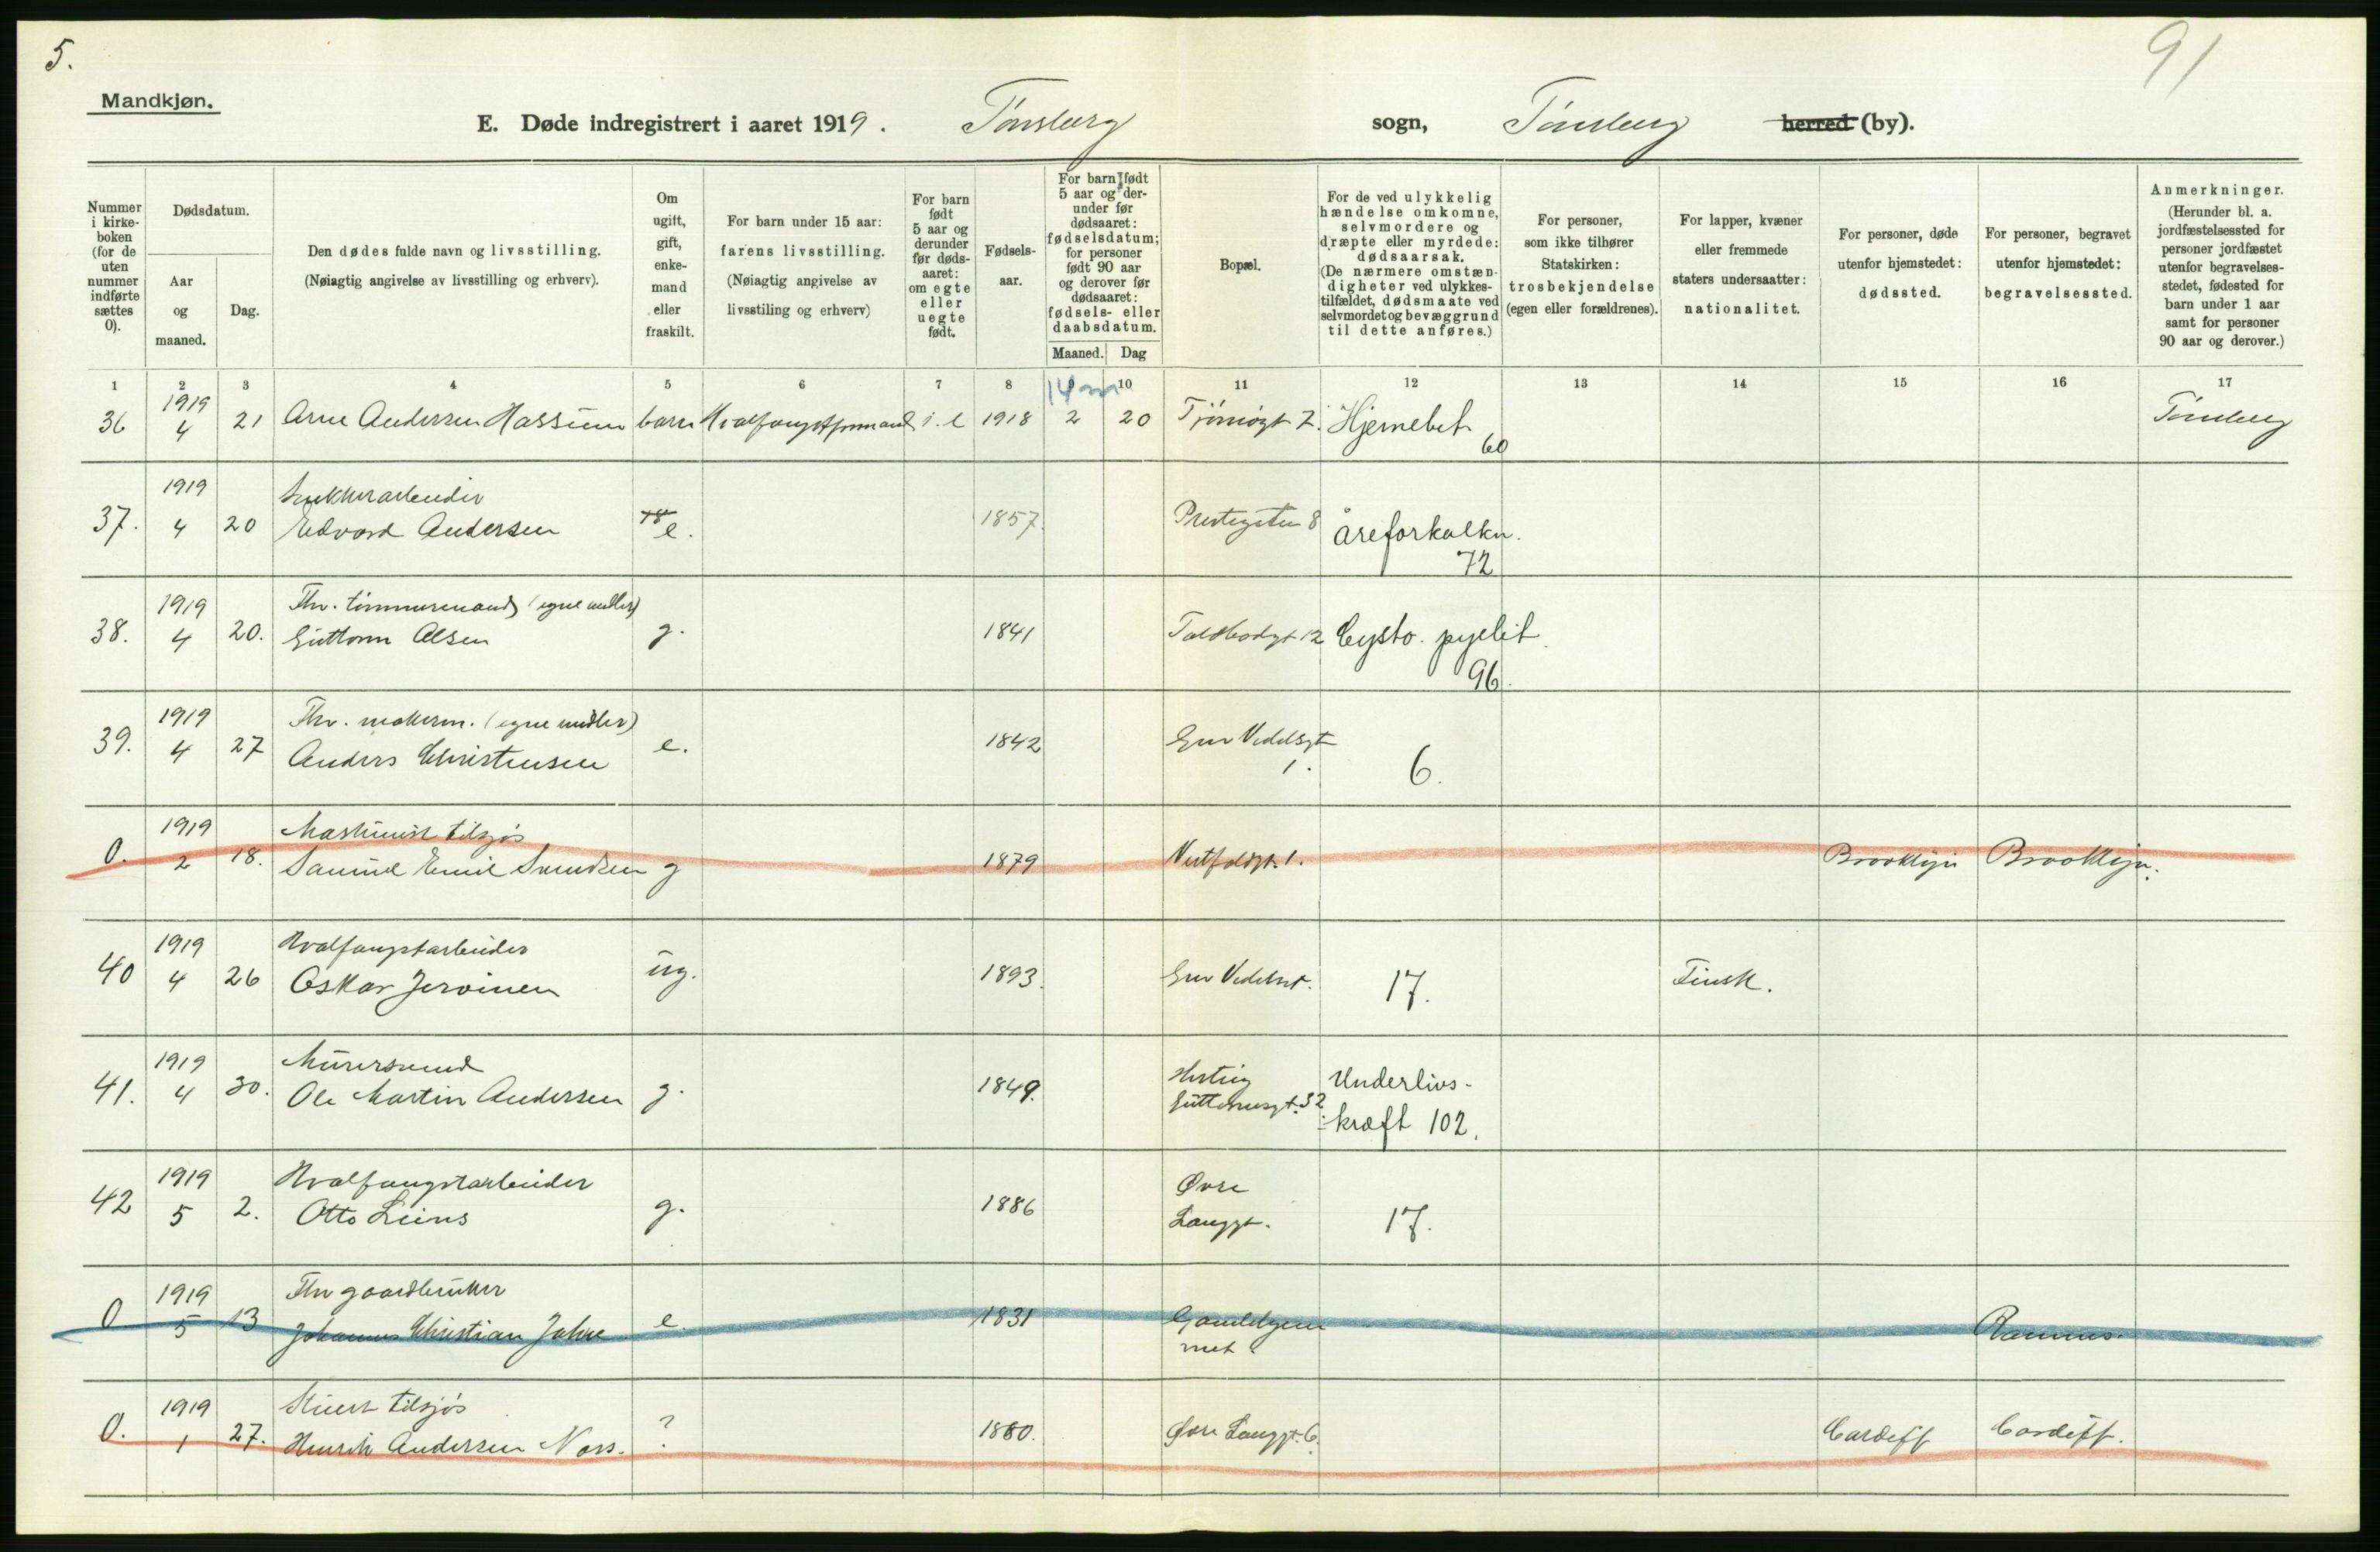 5.
91
Mandkjøn.
E. Døde indregistrert i aaret 1919. Tønsberg sogn, Tønsberg herred (by).
Nummer i kirke-boken (for de uten nummer indførte sættes 0).
Dødsdatum.
Aar og maaned.
Dag.
Den dødes fulde navn og livsstilling.
(Nøiagtig angivelse av livsstilling og erhverv).
Om ugift, gift, enke-mand eller fraskilt.
For barn under 15 aar: farens livsstilling.
(Nøiagtig angivelse av livsstiling og erhverv)
For barn født 5 aar og derunder før døds-aaret: om egte eller uegte født.
Fødsels-aar.
For barn født 5 aar og der-under før dødsaaret: fødselsdatum; for personer født 90 aar og derover før dødsaaret: fødsels- eller daabsdatum.
Maaned. Dag
Bopæl.
For de ved ulykkelig hændelse omkomne, selvmordere og dræpte eller myrdede: dødsaarsak.
(De nærmere omstæn-digheter ved ulykkes-tilfældet, dødsmaate ved selvmordet og bevæggrund til dette anføres.)
For personer, som ikke tilhører Statskirken: trosbekjendelse (egen eller forældrenes).
For lapper, kvæner eller fremmede staters undersaatter: nationalitet.
For personer, døde utenfor hjemstedet: dødssted.
For personer, begravet utenfor hjemstedet: begravelsessted.
Anmerkninger.
(Herunder bl. a. jordfæstelsessted for personer jordfæstet utenfor begravelses-stedet, fødested for barn under 1 aar samt for personer 90 aar og derover.)
1 2 3 4 5 6 7 8 9 10 11 12 13 14 15 16 17
14 m
36 1919 4 21 Arne Andersen Hassum barn Hvalfangstformand i. e 1918 2 20 Tjømøgt 7. Hjernebet. 60 Tønsberg
1919 Sukkerarbeider
37. 4 20 Edvard Andersen e. 1857. Prestegaten 8 Åreforkalkn. 72
1919 Fhv. tømmermand (egne midler)
38. 4 20. Guttorm Olsen g. 1841 Toldbodgt 12 Cysto. pyelit. 96.
1919 Fhv. (egne midler)
39. 4 27 Anders Christensen e. 1842 Grev Wedelsgt 1. 6.
1919 Maskinist tilsjøs
0. 2 18. Samuel Emil Svendsen g 1879 Vestfoldgt. 1. Brooklyn Brooklyn.
1919 Hvalfangstarbeider
40 4 26 Oskar Jervinen ug. 1893. Grev 17. Finsk.
1919 Murersvend
41. 4 30. Ole Martin Andersen g. 1849. Hertug Guttormsgt. 32 Underlivs-kræft 102.
1919 Hvalfangstarbeider
42 5 2. Otto Leins g. 1886 Øvre Langgt. 17.
1919 Fhv gaardbruker
0. 5 13 Johannes Christian Jahre e. 1831 Gamlehjemmet. Ramnes.
1919 Stuert tilsjøs
0. 1 27. Henrik Andersen Næss. ? 1880. Øvre Langgt. 6. Cardiff Cardiff.